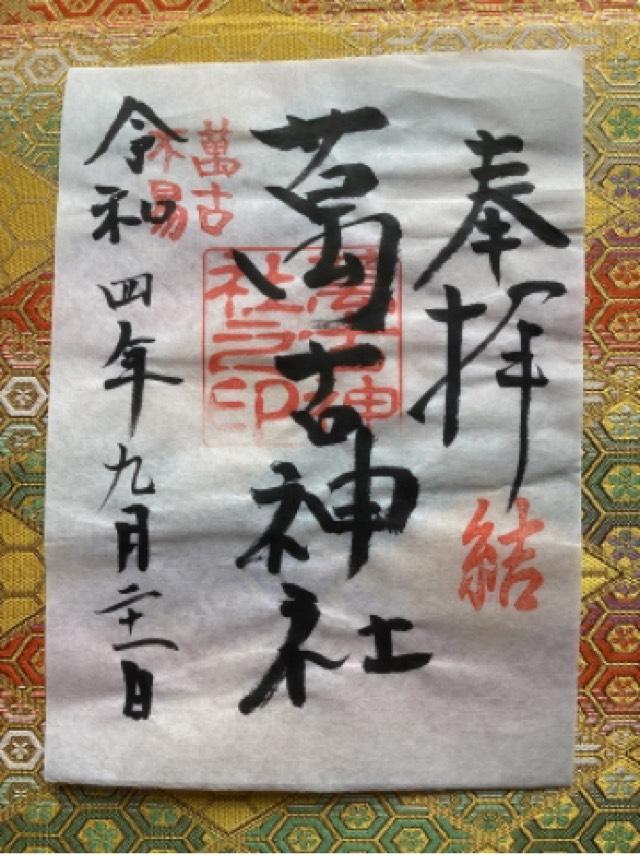 奉拝
結
萬古神社
萬古神
社之印
萬古
不易
令和四年九月二十一日